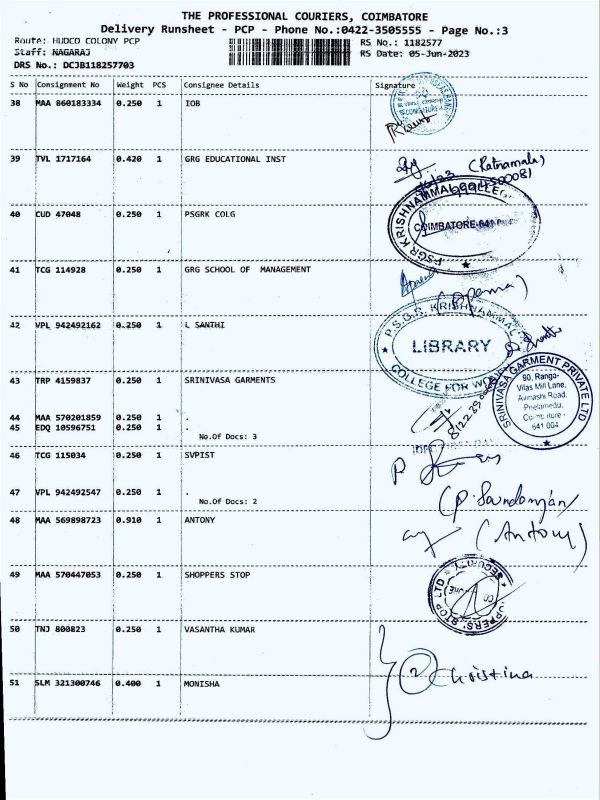 THE PROFESSIONAL COURIERS, COIMBATORE
Delivery Runsheet - PCP - Phone No.:0422-3505555 - Page No.:3
Route: HUDCO COLONY PCP
RS No.: 1182577
Staff: NAGARAJ
RS Date: 05-Jun-2023
DRS No.: DCJB118257703
S No Consignment No Weight PCS Consignee Details Signature
38 MAA 860183334 0.250 1 IOB
39 TVL 1717164 0.420 1 GRG EDUCATIONAL INST
(Ratnamala)
40 CUD 47048 0.250 1 PSGRK COLG
PSGR KRISHNAMMAL COLLEGE
COIMBATORE-641
41 TCG 114928 0.250 1 GRG SCHOOL OF MANAGEMENT
42 VPL 942492162 0.250 1 L SANTHI
P.S.G.R. KRISHNAMMAL
LIBRARY
COLLEGE FOR
43 TRP 4159837 0.250 1 SRINIVASA GARMENTS
SRINIVASA GARMENT PRIVATE LTD
90, Ranga-
Vilas Mill Lane,
Avinashi Road,
Peelamedu,
Coimbatore -
641 004
44 MAA 570201859 0.250 1 .
45 EDQ 10596751 0.250 1 .
No.Of Docs: 3
46 TCG 115034 0.250 1 SVPIST
47 VPL 942492547 0.250 1 .
No.Of Docs: 2
48 MAA 569898723 0.910 1 ANTONY
(Antony)
49 MAA 570447053 0.250 1 SHOPPERS STOP
SECURITY
50 TNJ 800823 0.250 1 VASANTHA KUMAR
2 Christina
51 SLM 321300746 0.400 1 MONISHA